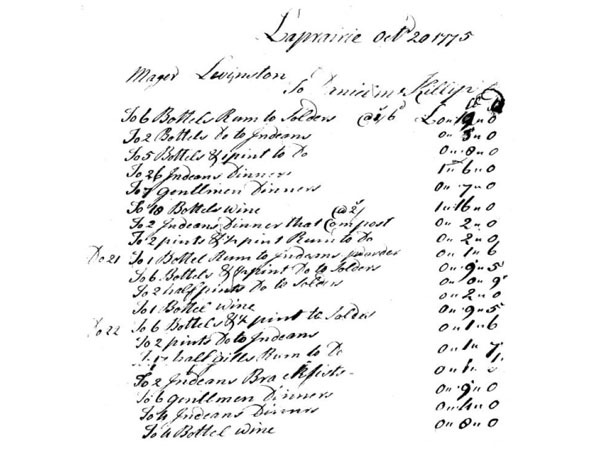 Laprairie Octr 20 1775
Mager Levinston
To
To 6 Bottels Rum to Solders @ 2/6 £0" "0
To 2 Bottels Do to Indeans 0"5"0
To 5 Bottels & pint to Do 0"8"0
To 26 Indeans Dinners 1"6"0
To 7 gentelmen Dinners 0"7"0
To 18 Bottels wine @ 2/ 1"16"0
To 2 Indeans Dinner that Compost 0"2"0
To 2 pints & ½ pint Rum to Do 0"2"0
Do 21 To 1 Bottel Rum to Indeans 0"1"6
To 6 Bottels & ½ pint Do to Solders 0"9"5
To 2 half pints Do to Solders 0"0"9
To 1 Bottel wine 0"2"0
Do 22 To 6 Bottels & ½ pint to Solders 0"9"5
To 2 pints Do to Indeans 0"1"6
half gills Rum to Do 0"1"7
To 2 Indeans Brackfists
To 6 gentellmen Dinners 0"9"0
To 4 Indeans Dinners 0"4"0
To 4 Bottel wine 0"8"0